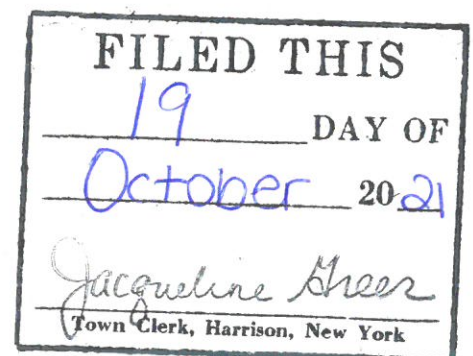 FILED THIS
19 DAY OF
October 20 21
Jacqueline Greer
Town Clerk, Harrison, New York